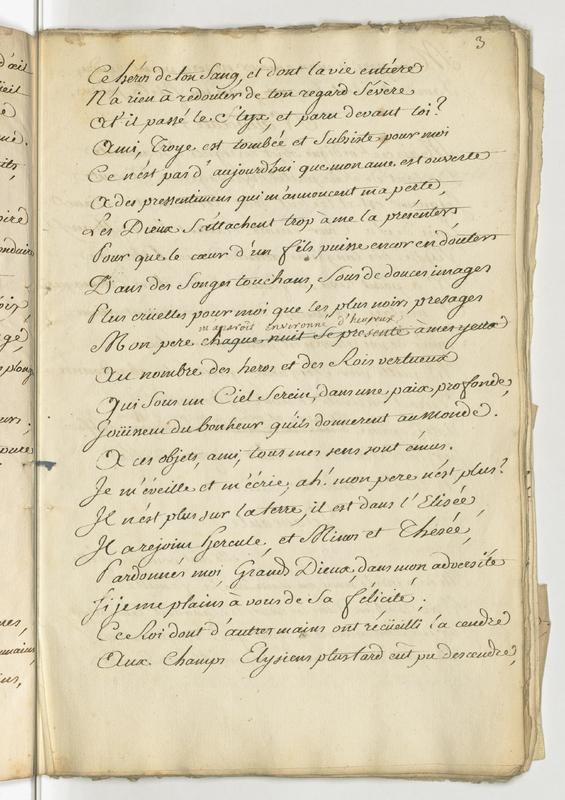 3
Ce héros de ton Sang, et dont la vie entiére
N'a rien à redouter de ton regard Sévère
At'il passé le Styx, et paru devant toi?
Ami, Troye est tombée et Subsiste pour moi
Ce n'est pas d'aujourdhui que mon ame est ouverte
A des pressentimens qui m'annoncent ma perte,
Les Dieux S'attachent trop à me la présenter
Pour que le cœur d'un fils puisse encor en douter
Dans des Songes touchans, Sous de douces images
Plus cruelles pour moi que les plus noirs presages
m'aparoit environné d'heureux
Mon pere chaque nuit Se presente à mes yeux
Au nombre des heros et des Rois vertueux
Qui Sous un Ciel Serein, dans une paix profonde,
Joüissent du bonheur qu'ils donnerent au monde.
A ces objets, ami, tous mes sens sont émus.
Je m'éveille et m'écrie, ah! mon pere n'est plus?
Il n'est plus sur la terre, il est dans l'Elisée,
Il a rejoint Hercule, et Minos et Thesée,
Pardonnés moi, Grands Dieux, dans mon adversité
Si je me plains à vous de Sa félicité.
Ce Roi dont d'autres mains ont recüeilli la cendre
Aux Champs Elysiens plus tard eut pu descendre,